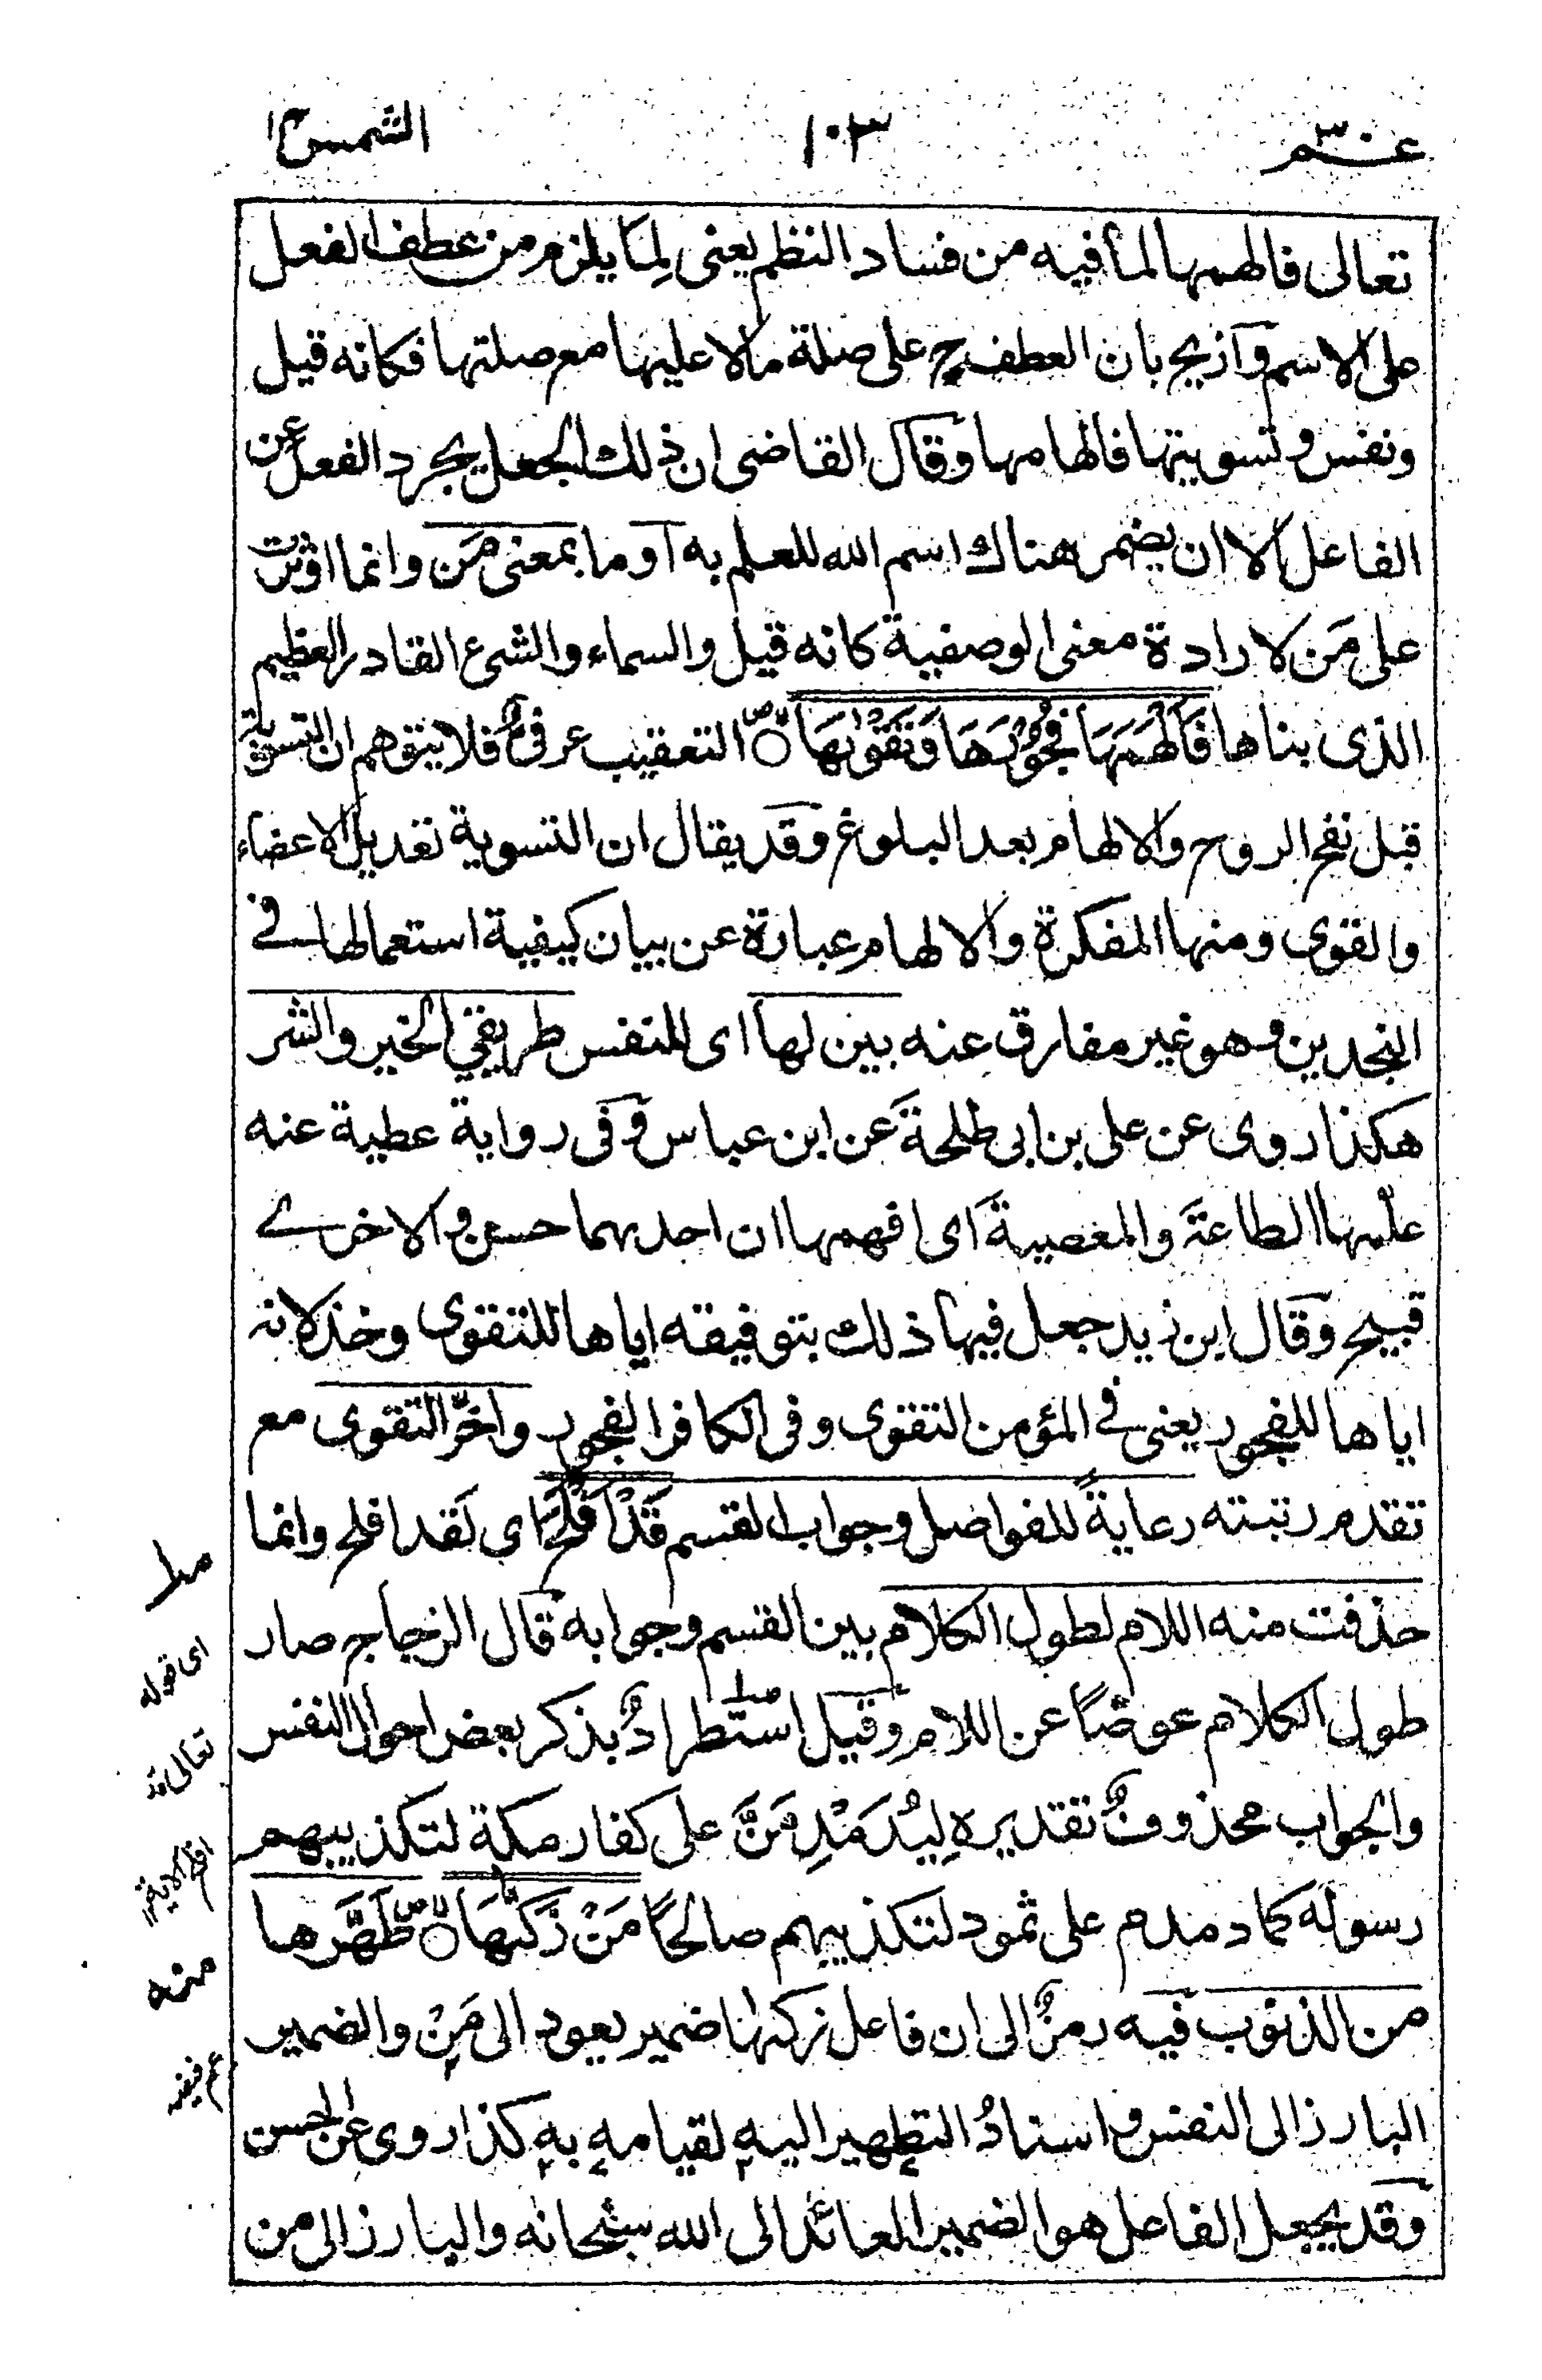 عـم ٣٠
١٠٣
الشمس ٩١
تعالى فالهمها لما فيه من فساد النظم يعنى لِمَا يلزم من عطف الفعل
على الاسم وازيح بان العطف ح على صلة ما لا عليها مع صلتها فكانه قيل
ونفس وتسويتها فالهامها وقال القاضى ان ذلك الجعل يجرد الفعل عن
الفاعل الا ان يضمر هناك اسم الله للعلم به او ما بمعنى مَن وانما اوثرت
على مَن لارادة معنى الوصفية كانه قيل والسماء والشئ القادر العظيم
الذى بناها فَاَلْهَمَهَا فُجُوْرَهَا وَتَقْوٰىهَا التعقيب عرفىٌّ فلا يتوهم ان التسوية
قبل نفخ الروح والالهام بعد البلوغ وقد يقال ان التسوية تعديل الاعضاء
والقوى ومنها المفكرة والالهام عبارة عن بيان كيفية استعمالها فے
النجدين وهو غير مفارق عنه بين لها اى للنفس طريقي الخير والشر
هكذا روى عن على بن ابى طلحة عن ابن عباس وفى رواية عطية عنه
علّمها الطاعة والمعصية اى افهمها ان احدهما حسن والاخرے
قبيح وقال ابن زيد جعل فيها ذلك بتوفيقه اياها للتقوى وخذلانه
اياها للفجور يعنى فے المؤمن التقوى وفى الكافر الفجور واخّر التقوى مع
تقدم رتبته رعايةً للفواصل وجواب القسم قَدْ اَفْلَحَ اى لَقد افلح وانما
حذفت منه اللام لطول الكلام بين القسم وجوابه قال الزجاج صار
طول الكلام عوضًا عن اللام وقيل استطرادٌ بذكر بعض احوال النفس
والجواب محذوفٌ تقديره لِيُدَمْدِمَنَّ على كفار مكة لتكذيبهم
رسوله كما دمدم على ثمود لتكذيبهم صالحًا مَنْ زَكّٰىهَا طَهَّرها
من الذنوب فيه رمزٌ الى ان فاعل زكٰها ضمير يعود الى مَنْ والضمير
البارز الى النفس واسنادُ التطهير اليه لقيامه به كذا روى عن الحسن
وقد يجعل الفاعل هو الضمير العائد الى الله سبحانه والبارز الى من
اى قوله
تعالى قد
افلح
منه